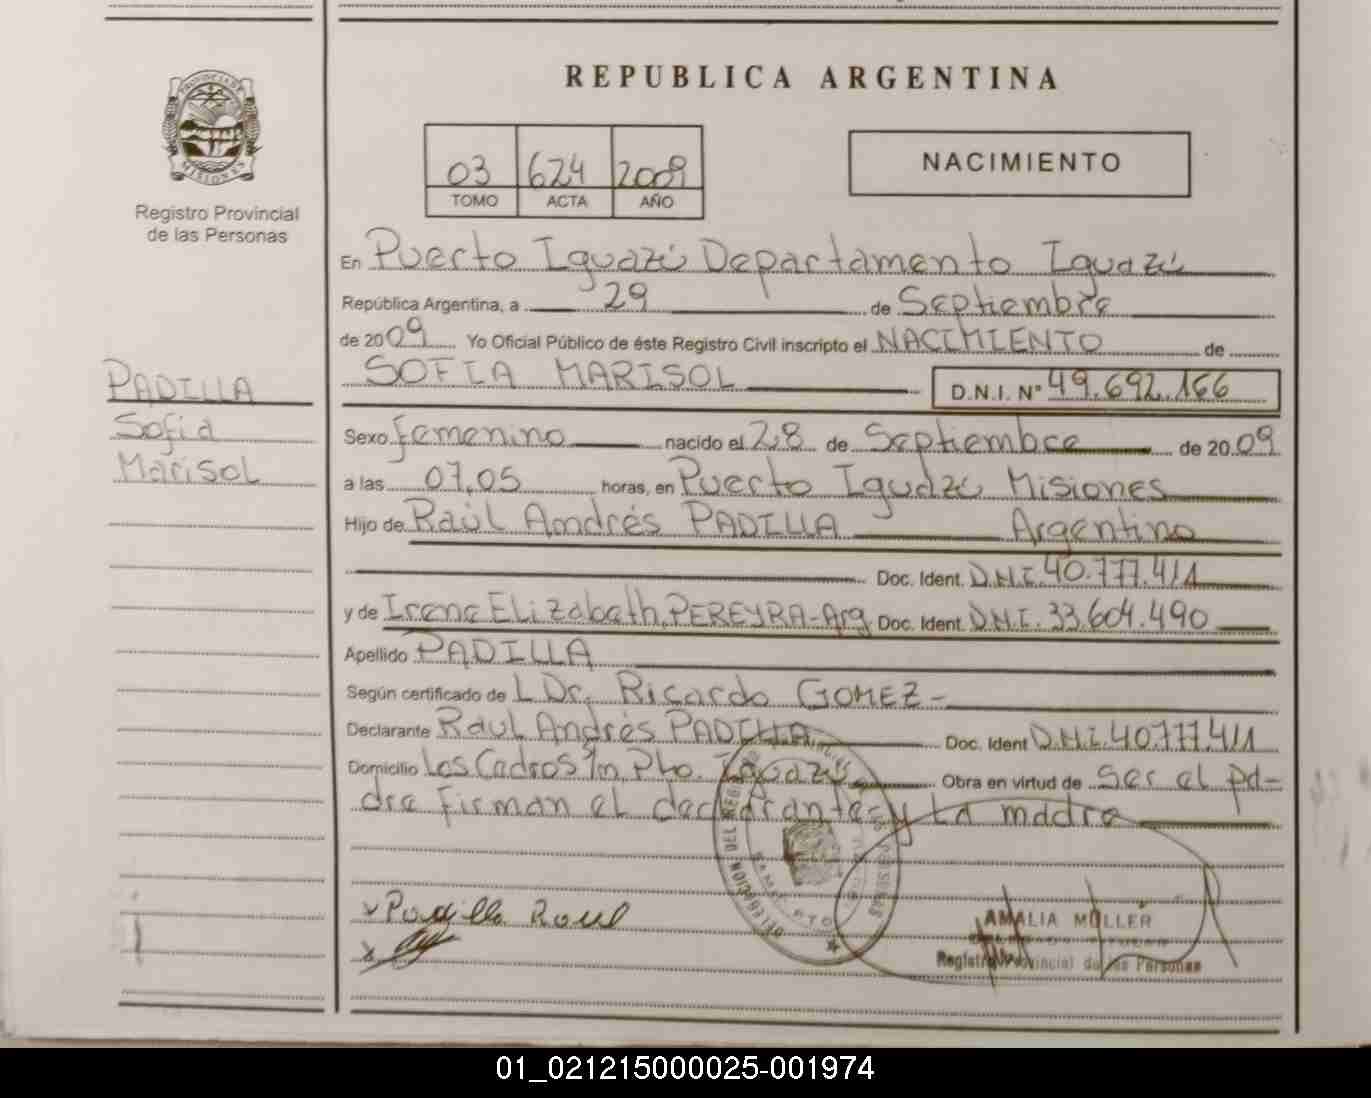 REPUBLICA ARGENTINA
PROVINCIA DE
MISIONES
Registro Provincial
de las Personas
03 624 2009
TOMO ACTA AÑO
NACIMIENTO
En Puerto Iguazú Departamento Iguazú
República Argentina, a 29 de Septiembre
de 2009 Yo Oficial Público de éste Registro Civil inscripto el NACIMIENTO de
SOFIA MARISOL D.N.I. N° 49.692.166
PADILLA
Sofia
Marisol
Sexo femenino nacido el 28 de Septiembre de 2009
a las 07,05 horas, en Puerto Iguazú Misiones
Hijo de Raúl Andrés PADILLA Argentino
Doc. Ident. D.N.I. 40.777.411
y de Irene ELizabeth PEREYRA-Arg Doc. Ident. D.N.I. 33.604.490
Apellido PADILLA
Según certificado de L Dr. Ricardo GOMEZ-
Declarante Raúl Andrés PADILLA Doc. Ident D.N.I. 40.777.411
Domicilio Los Cedros S/n Pto. Iguazú Obra en virtud de ser el pa-
dre firman el declarante y La madre
DELEGACION DEL REGISTRO
x Padilla Raul
x
AMALIA MULLER
Registro Provincial de las Personas
01_021215000025-001974